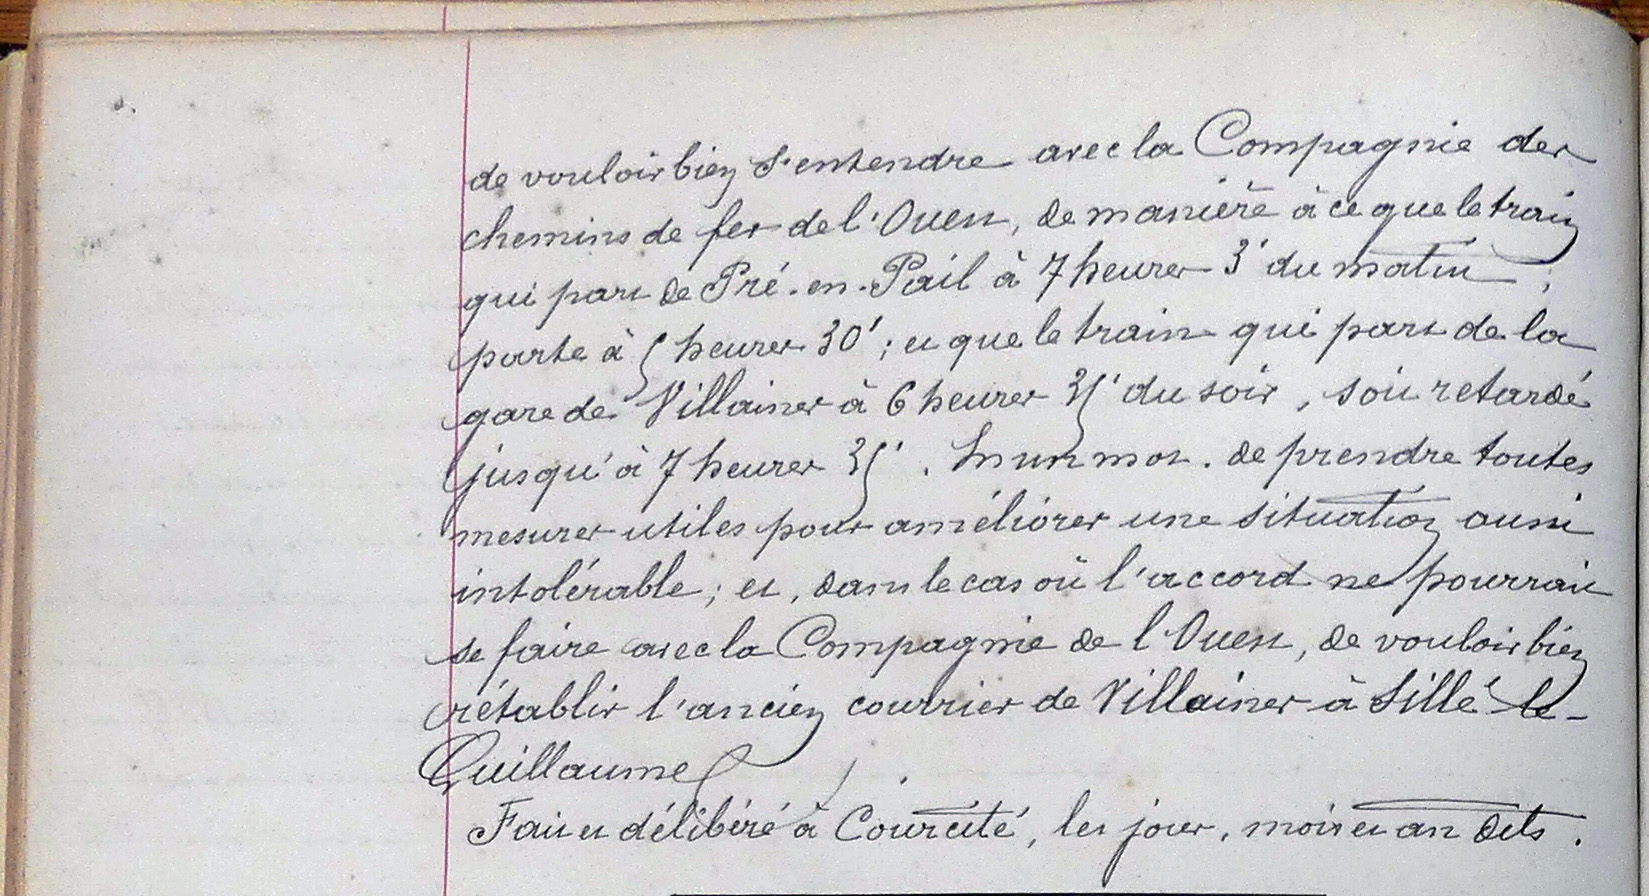 de vouloir bien s'entendre avec la Compagnie des
chemins de fer de l'Ouest, de manière à ce que le train
qui part de Pré-en-Pail à 7 heures 3' du matin,
parte à 5 heures 30'; et que le train qui part de la
gare de Villaines à 6 heures 35' du soir, soit retardé
jusqu'à 7 heures 35'. En un mot. de prendre toutes
mesures utiles pour améliorer une situation aussi
intolérable; et, dans le cas où l'accord ne pourrait
se faire avec la Compagnie de l'Ouest, de vouloir bien
rétablir l'ancien courrier de Villaines à Sillé-le-
Guillaume.
Fait et délibéré à Courcité, les jour, mois et an dits.